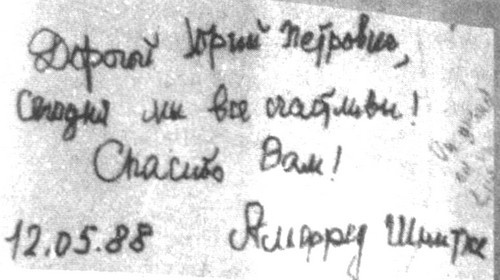 Дорогой Юрий Петрович,
Сегодня мы все счастливы!
Спасибо Вам!
12.05.88 Альфред Шнитке